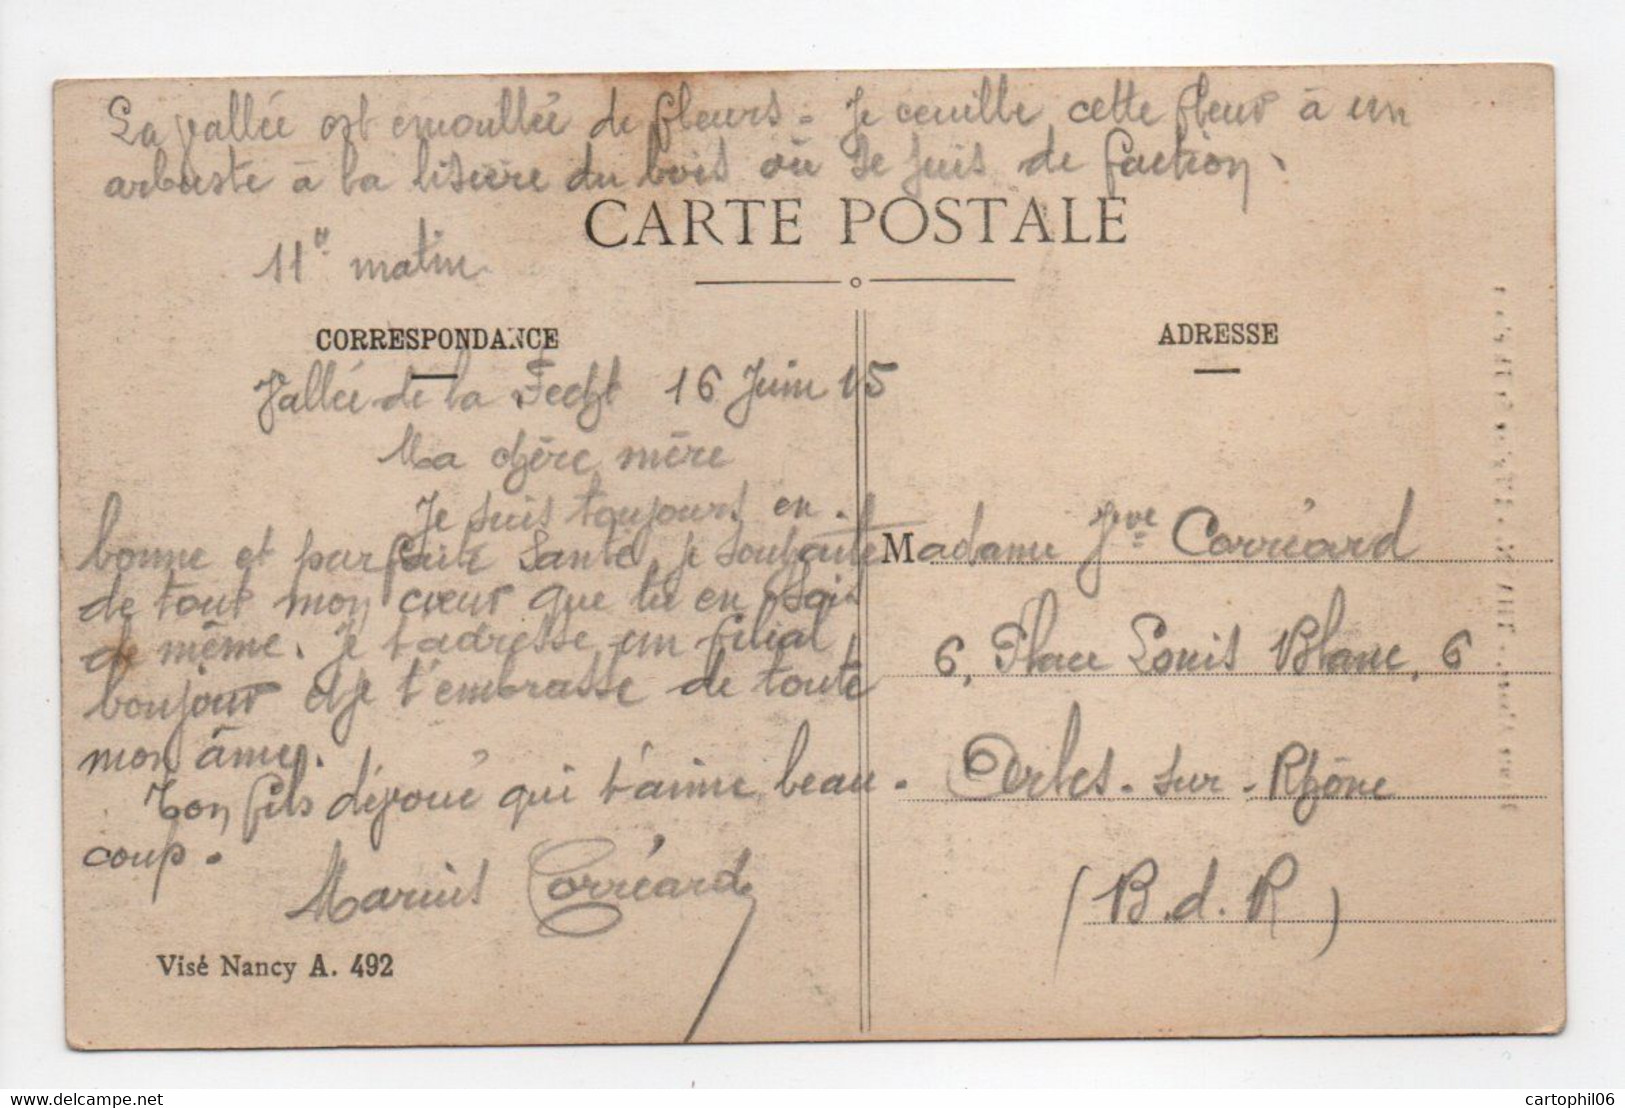 La vallée est émaillée de fleurs. Je ceuille cette fleur à un
arbuste à la lisière du bois où je suis de faction.
CARTE POSTALE
11h matin
CORRESPONDANCE
ADRESSE
Vallée de la Fecht 16 Juin 15
Ma chère mère
Je suis toujours en
bonne et parfaite santé, je souhaite
de tout mon cœur que tu en sois
de même. Je t'adresse un filial
bonjour et je t'embrasse de toute
mon âme.
Ton fils dévoué qui t'aime beau-
coup.
Marius Corréard
Visé Nancy A. 492
Madame Vve Corréard
6, Place Louis Blanc, 6
Arles-sur-Rhône
(B.d.R)
cartophil06